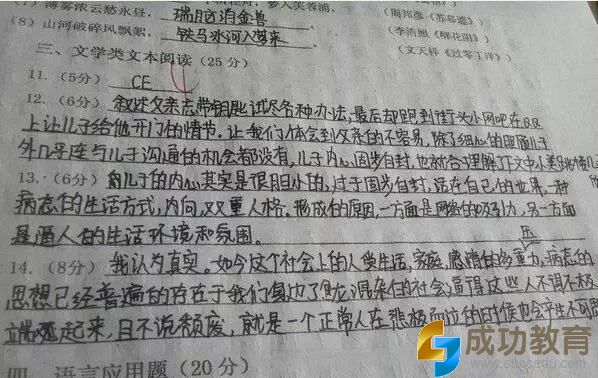 (7) 薄雾浓云愁永昼，瑞脑消金兽。(李清照《醉花阴》)
(8) 山河破碎风飘絮，铁马冰河入梦来。(文天祥《过零丁洋》)
(周邦彦《苏幕遮》)
三、文学类文本阅读 (25分)
11. (5分) CE
12. (6分) 叙述父亲忘带钥匙试尽各种办法，最后却跑到街头小网吧在QQ
上让儿子给他开门的情节。让我们体会到父亲的不容易，除了细心的照顾儿子
外几乎连与儿子沟通的机会都没有，儿子内心固步自封，也就合理解了下文中
13. (6分) 的儿子的内心其实是很胆小的，过于固步自封，活在自己的世界，一种
病态的生活方式，内向，双重人格。形成的原因，一方面是网络的吸引力，另一方面
是逼人的生活环境和氛围。
压
14. (8分) 我认为真实。如今这个社会上的人受生活，家庭，感情的多重力，病态的
思想已经普遍的存在于我们身边了鱼龙混杂的社会，逼得这些人不得不极
端起来，且不说颓废，就是一个正常人在悲极而泣的时候也会产生不可思
四、语言应用题 (20分)
成功教育
www.sucsedu.com